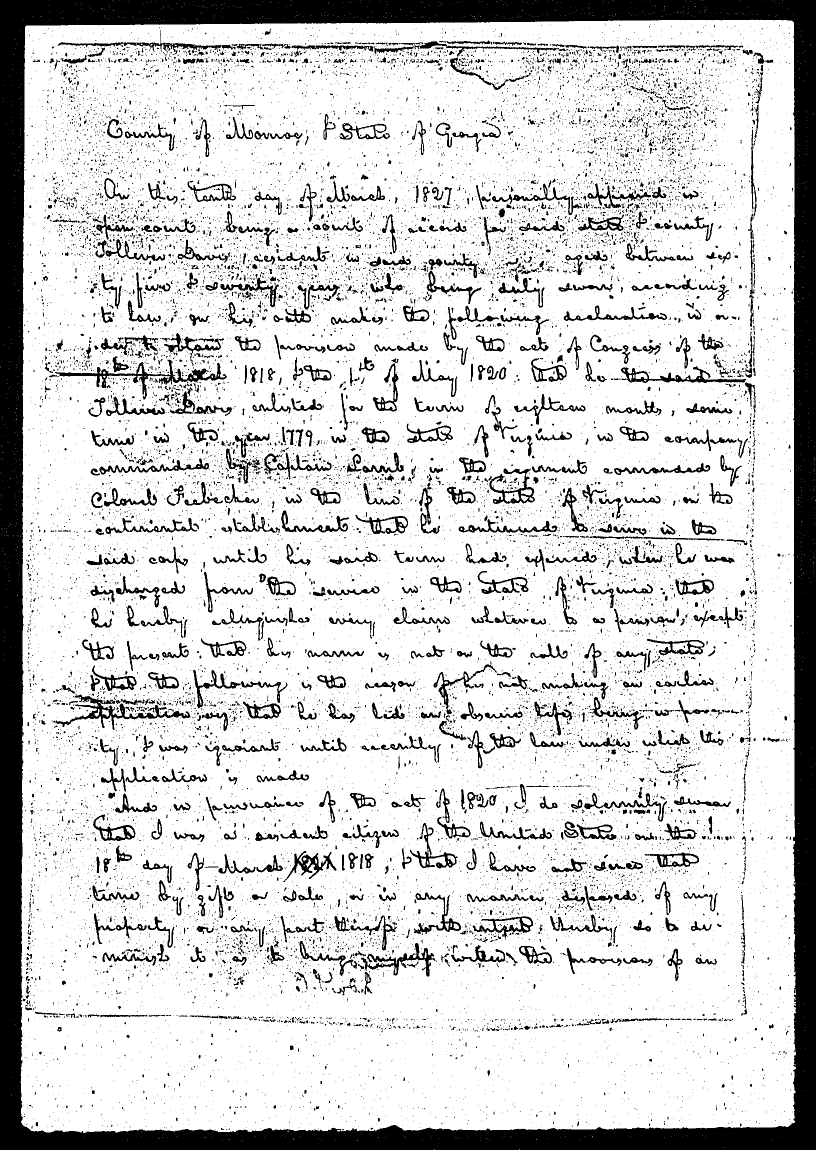 County of Monroe, & State of Georgia
On this tenth day of March, 1827, personally appeared in
open court, being a court of record for said state & county
Tolliver Davis, resident in said county aged between six-
ty five & seventy years, who being duly sworn, according
to law, on his oath makes the following declaration, in or-
der to obtain the provision made by the acts of Congress of the
18th of March 1818, & the 1st of May 1820: that he the said
Tolliver Davis, enlisted for the term of eighteen months, some
time in the year 1779, in the state of Virginia, in the company
commanded by Captain Lamb, in the regiment commanded by
Colonel Feebecker, in the line of the state of Virginia, on the
continental establishment: that he continued to serve in the
said corps, until his said term had expired, when he was
discharged from the service in the state of Virginia; that
he hereby relinquishes every claim whatever to a pension, except
the present: that his name is not on the roll of any state;
& that the following is the reason of his not making an earlier
application, viz, that he has led an obscure life, being in pover-
ty, & was ignorant until recently, of the law under which this
application is made
And in pursuance of the act of 1820, I do solemnly swear
that I was a resident citizen of the United States on the
18th day of March 1818; & that I have not since that
time by gift or sale, or in any manner disposed of any
property, or any part thereof, with intent, thereby so to di-
minish it as to bring myself within the provisions of an